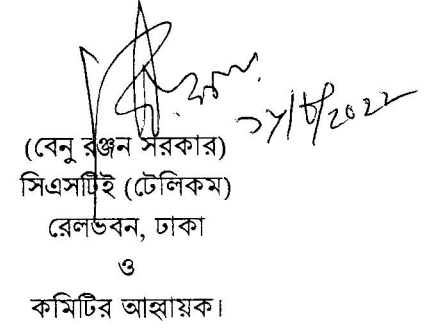 (বেনু রঞ্জন সরকার)
সিএসটিই (টেলিকম)
রেলভবন, ঢাকা
ও
কমিটির আহ্বায়ক।